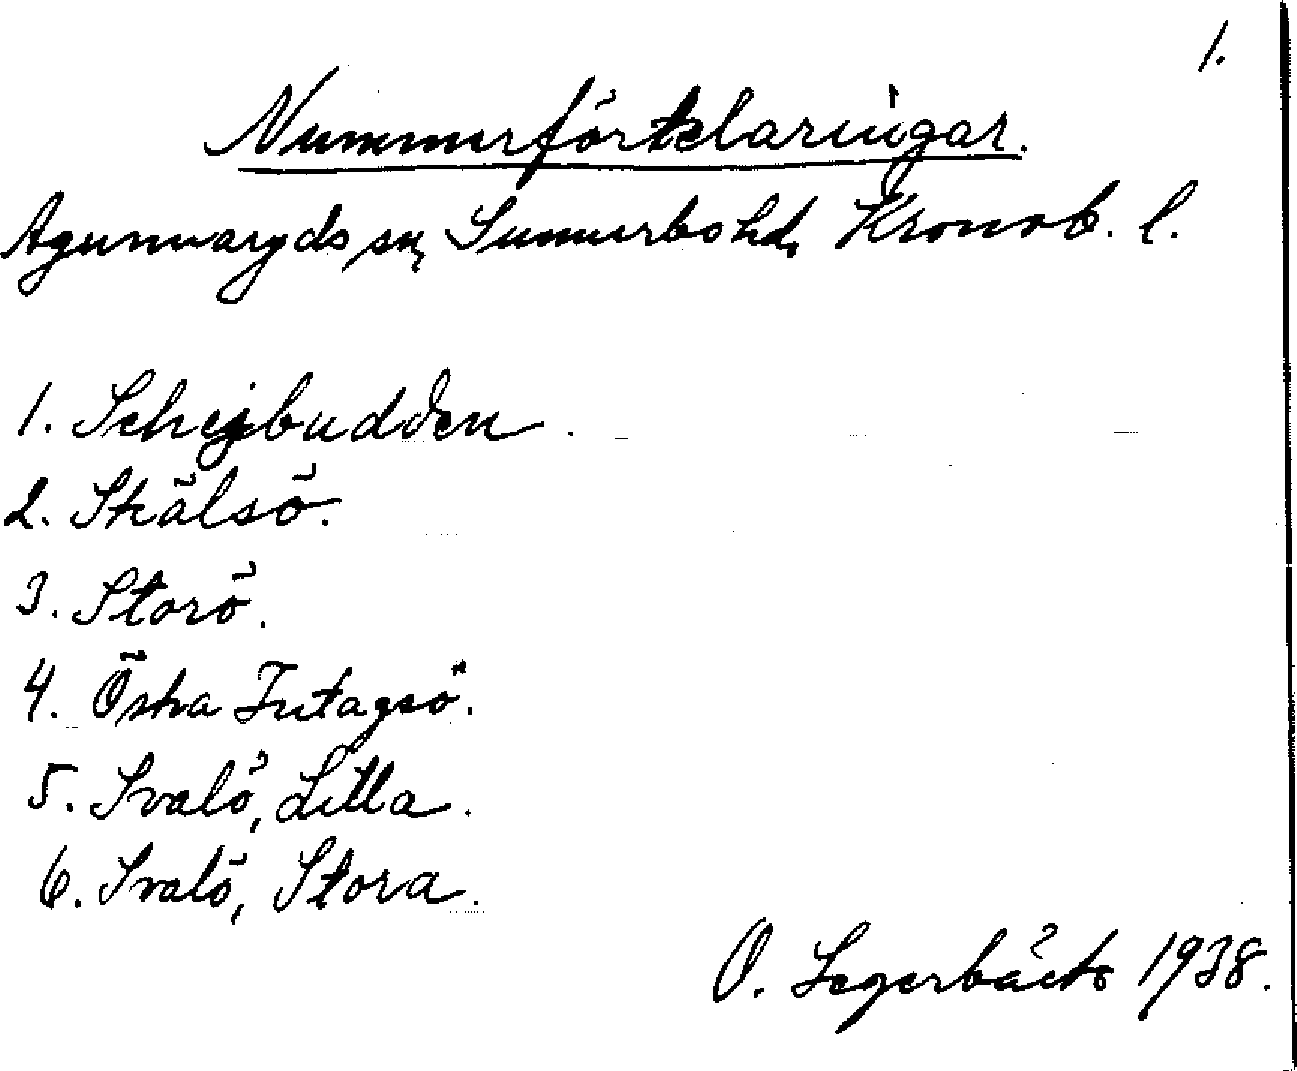 1.
Nummerförklaringar.
Agunnaryds sn, Sunnerbo hd, Kronob. l.
1. Schejbudden.
2. Skälsö.
3. Storö.
4. Öska Tutagsö.
5. Svalö, Lilla.
6. Svalö, Stora.
O. Segerbäck 1938.